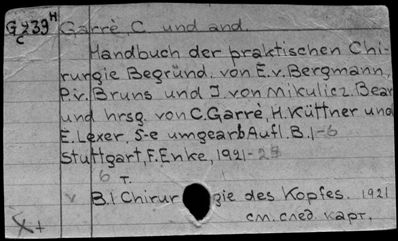 G 239 H Garrè, C. und and.
C
Handbuch der praktischen Chi-
rurgie Begründ. von E.v. Bergmann,
P.v. Bruns und J. von Mikulicz. Bear
und hrsg. von C. Garrè, H. Küttner und
E. Lexer. 5-e umgearb Aufl. B. 1-6
Stuttgart, F. Enke, 1921-
6 т.
v B. 1 Chirurgie des Kopfes. 1921
см. след. карт.